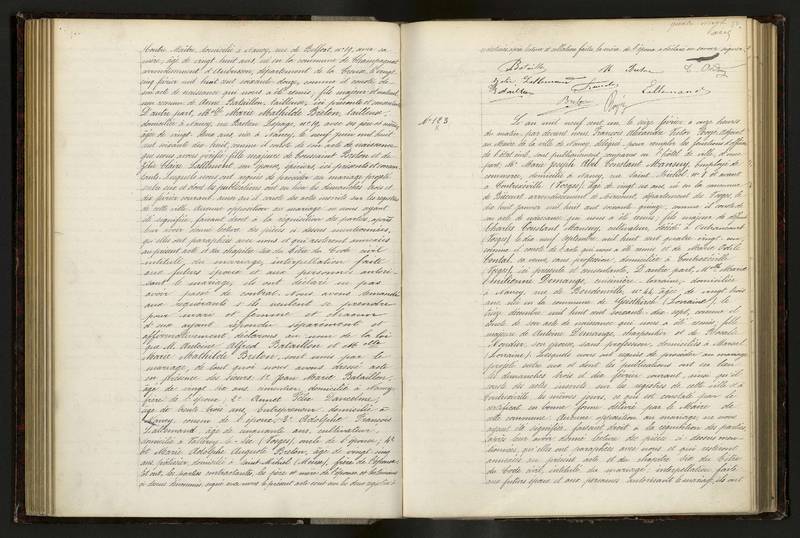 Contre Maître, domicilié à Nancy, rue de Belfort, n° 19, avec sa
mère, âgé de vingt huit ans, né en la commune de Champagnat
arrondissement d'Aubusson, département de la Creuse, le vingt
cinq février mil huit cent soixante douze, comme il conste de
son acte de naissance qui nous a été remis, fils majeur et naturel
non reconnu de Anne Bataillon, tailleuse, ici présente et consentante.
D'autre part, M.elle Marie Mathilde Breton, tailleuse,
domiciliée à Nancy, rue Bastien Lepage, n° 19, avec ses père et mère,
âgée de vingt deux ans, née à Nancy, le neuf juin mil huit
cent soixante dix huit, comme il conste de son acte de naissance
que nous avons vérifié, fille majeure de Toussaint Breton et de
Claire Lallemand, son épouse, épiciers, ici présents et consen-
tants. Lesquels nous ont requis de procéder au mariage projeté
entre eux et dont les publications ont eu lieu les dimanches trois et
dix février courant, ainsi qu'il conste des actes inscrits sur les registres
de cette ville. Aucune opposition au mariage ne nous ayant
été signifiée, faisant droit à la réquisition des parties, après
leur avoir donné lecture des pièces ci dessus mentionnées,
qu'elles ont paraphées avec nous et qui resteront annexées
au présent acte et du chapitre six du Titre du Code civil,
intitulé, du mariage, interpellation faite
aux futurs époux et aux personnes autori-
sant le mariage, ils ont déclaré ne pas
avoir passé de contrat. Nous avons demandé
aux requérants s'ils veulent se prendre
pour mari et femme et chacun
d'eux ayant répondu séparément et
affirmativement déclarons au nom de la loi
que M. Antoine Alfred Bataillon et M.elle
Marie Mathilde Breton, sont unis par le
mariage, de tout quoi nous avons dressé acte
en présence des sieurs 1° Jean Marie Bataillon,
âgé de vingt six ans, cimentier, domicilié à Nancy,
frère de l'époux; 2° Annet Félix
âgé de trente trois ans, Entrepreneur, domicilié à
Nancy, cousin de l'époux; 3° Adolphe François
Lallemand, âgé de cinquante ans, cultivateur,
domicilié à (Vosges) oncle de l'épouse; 4°
et Marie Adolphe Auguste Breton, âgé de vingt cinq
ans, pâtissier, domicilié à Saint Mihiel (Meuse), frère de l'épouse
Et ont, les parties contractantes, les père et mère de l'épouse et les témoins
ci dessus dénommés, signé avec nous le présent acte écrit sur les deux registres
quatre vingt
ci-dessus, après lecture et collation faite, la mère de l'époux a déclaré ne savoir signer
Bataillon M Breton
Lallemand
Bataillon Lallemand
Breton
N° 123
L'an mil neuf cent un, le seize février à onze heures
du matin, par devant nous, François Alexandre Victor adjoint
au Maire de la ville de Nancy, délégué pour remplir les fonctions d'officier
de l'état civil, sont publiquement comparus en l'hôtel de ville, d'une
part, M. Marie Joseph Abel Constant Mansuy, Employé de
commerce, domicilié à Nancy, rue Saint Michel, n° 8 et avant
à Contrexéville (Vosges), âgé de vingt six ans, né en la commune
de arrondissement de Mirecourt, département des Vosges, le
mil huit cent soixante quinze, comme il conste de
son acte de naissance qui nous a été remis, fils majeur de défunt
Charles Constant Mansuy, cultivateur, décédé à
(Vosges), le dix neuf Septembre mil huit cent quatre vingt
comme il conste de l'acte qui nous a été remis et de Marie Odile
Contal, sa veuve, sans profession, domiciliée à Contrexéville
(Vosges), ici présente et consentante. D'autre part, M.elle Marie
Emilienne Demange, cuisinière, lorraine, domiciliée
à Nancy, rue de Boudonville, n° 44, âgée de vingt trois
ans, née en la commune de (Lorraine), le
treize décembre mil huit cent soixante dix sept, comme il
conste de son acte de naissance qui nous a été remis, fille
majeure de Antoine Demange, charpentier et de
son épouse, sans profession, domiciliés à
(Lorraine). Lesquels nous ont requis de procéder au mariage
projeté entre eux et dont les publications ont eu lieu
les dimanches trois et dix février courant, ainsi qu'il
conste des actes inscrits sur les registres de cette ville et à
Contrexéville les mêmes jours, ce qui est constaté par le
certificat en bonne forme délivré par le Maire de
cette commune. Aucune opposition au mariage ne nous
ayant été signifiée, faisant droit à la réquisition des parties,
après leur avoir donné lecture des pièces ci dessus men-
tionnées, qu'elles ont paraphées avec nous et qui resteront
annexées au présent acte et du chapitre six du Titre
du Code civil, intitulé du mariage, interpellation faite
aux futurs époux et aux personnes autorisant le mariage, ils ont